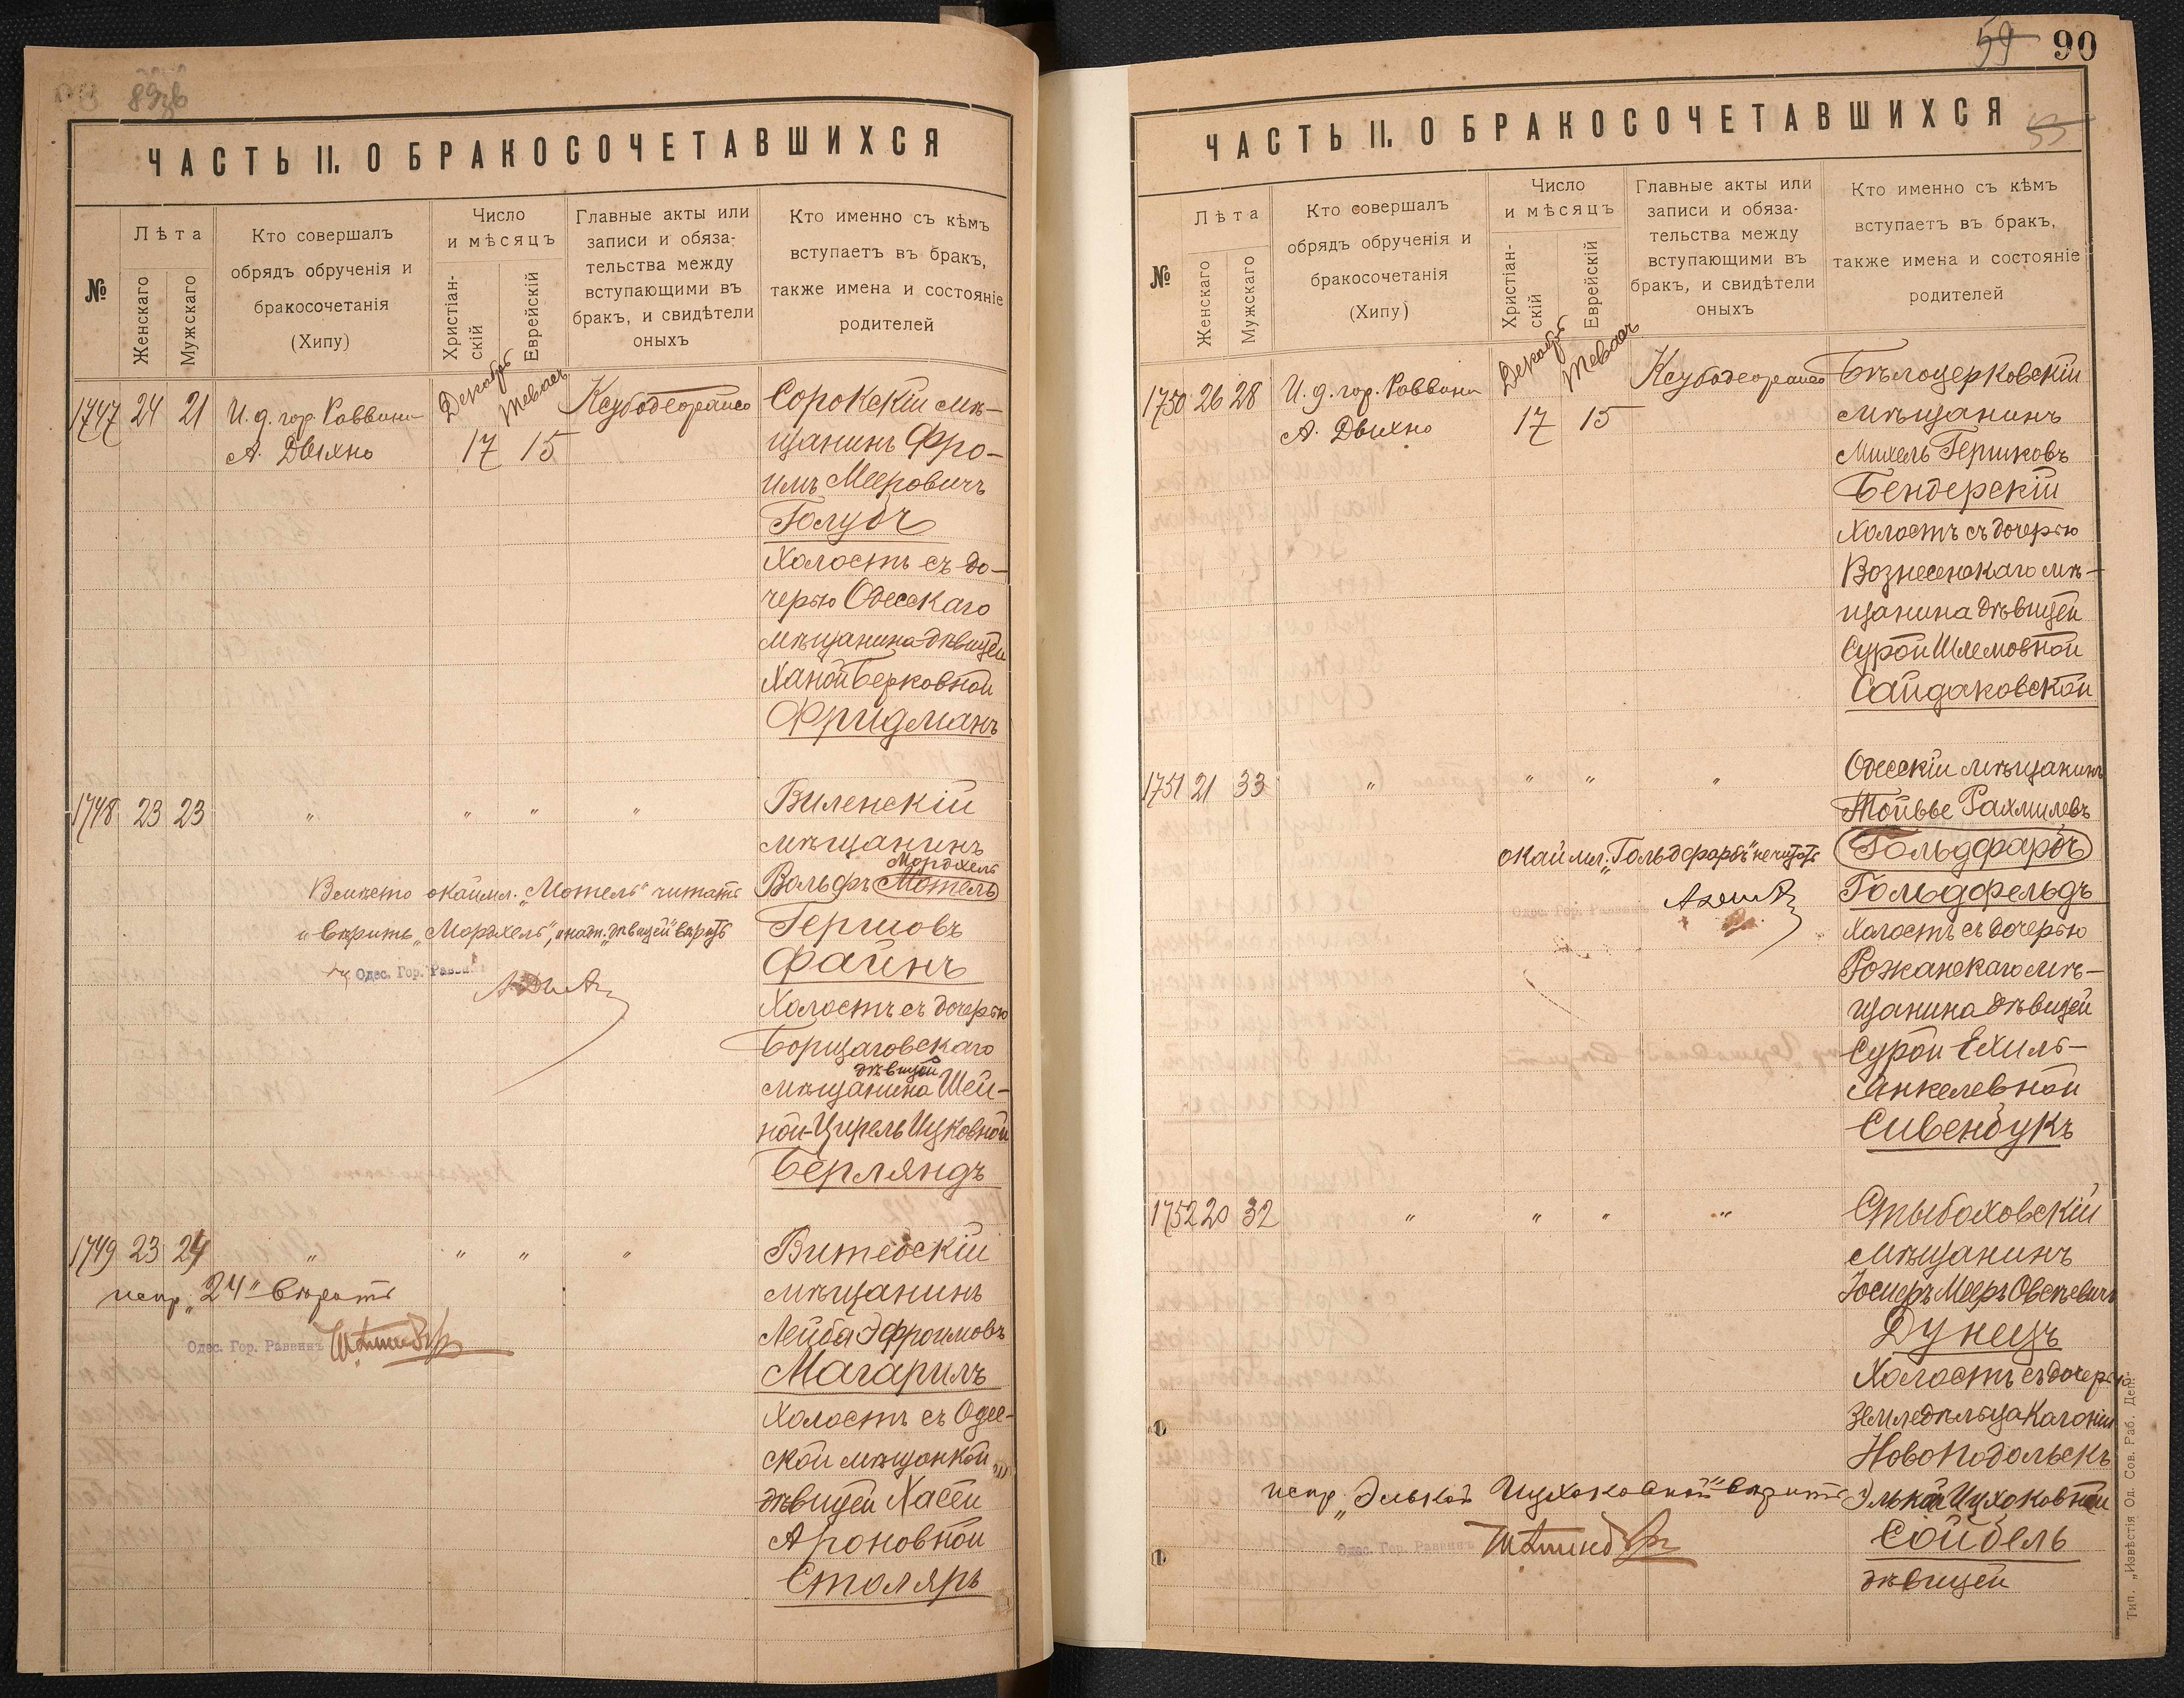 89зв
ЧАСТЬ II. О БРАКОСОЧЕТАВШИХСЯ
№
Лѣта
Женскаго
Мужскаго
Кто совершалъ
обрядъ обрученія и
бракосочетанія
(Хипу)
Число
и мѣсяцъ
Христіан-
скій
Еврейскій
Главные акты или
записи и обяза-
тельства между
вступающими въ
бракъ, и свидѣтели
оныхъ
Кто именно съ кѣмъ
вступаетъ въ бракъ,
также имена и состояніе
родителей
1747 24 21 И. д. гор. Раввина
А. Двихно
Декабрь
Теваѳъ
17 15
Сорокскій мѣ-
щанинъ Фро-
имъ Мееровичъ
Голубъ
Холостъ съ до-
черью Одесскаго
мѣщанина дѣвицей
Ханой Берковной
Фридманъ
1748 23 23 " " " "
Виленскій
мѣщанинъ
Мордхель
Вольфъ Мотель
Гершовъ
Файнъ
Холостъ съ дочерью
Борщаговскаго
дѣвицей
мѣщанина Шей-
ной-Цирель Ицковной
Берляндъ
Вмѣсто окаймл. „Мотель" читать
и вѣрить „Мордхель", и надп. „дѣвицей" вѣрить
Одес. Гор. Раввинъ
1749 23 24 " " " "
испр. „24" вѣрить
Одес. Гор. Раввинъ
Витебскій
мѣщанинъ
Лейба Эфроимовъ
Магарилъ
Холостъ съ Одес-
ской мѣщанкой
дѣвицей Хасей
Ароновной
Столяръ
59 90
53
ЧАСТЬ II. О БРАКОСОЧЕТАВШИХСЯ
№
Лѣта
Женскаго
Мужскаго
Кто совершалъ
обрядъ обрученія и
бракосочетанія
(Хипу)
Число
и мѣсяцъ
Христіан-
скій
Еврейскій
Главные акты или
записи и обяза-
тельства между
вступающими въ
бракъ, и свидѣтели
оныхъ
Кто именно съ кѣмъ
вступаетъ въ бракъ,
также имена и состояніе
родителей
1750 26 28 И. д. гор. Раввина
А. Двихно
Декабрь
Теваѳъ
17 15
Бѣлоцерковскій
мѣщанинъ
Михель Гершковъ
Бендерскій
Холостъ съ дочерью
Вознесенскаго мѣ-
щанина дѣвицей
Сурой Шлемовной
Сайдаковской
1751 21 33 " " " "
Одесскій мѣщанинъ
Тойвье Рахмилевъ
Гольдфарбъ
Гольдфельдъ
Холостъ съ дочерью
Рожанскаго мѣ-
щанина дѣвицей
Сурой Ехиль-
Янкелевной
Сивенбукъ
окаймл. „Гольдфарбъ" не читать
Одес. Гор. Раввинъ
1752 20 32 " " " "
мѣщанинъ
Іосифъ Мееръ Овсѣевичъ
Дунецъ
Холостъ съ дочерью
земледѣльца Колоніи
Новоподольскъ
Элькой Ицхоковной
Сойбель
дѣвицей
испр. „Элькой Ицхоковной" вѣрить
Одес. Гор. Раввинъ
Тип. „Извѣстія Од. Сов. Раб. Деп."